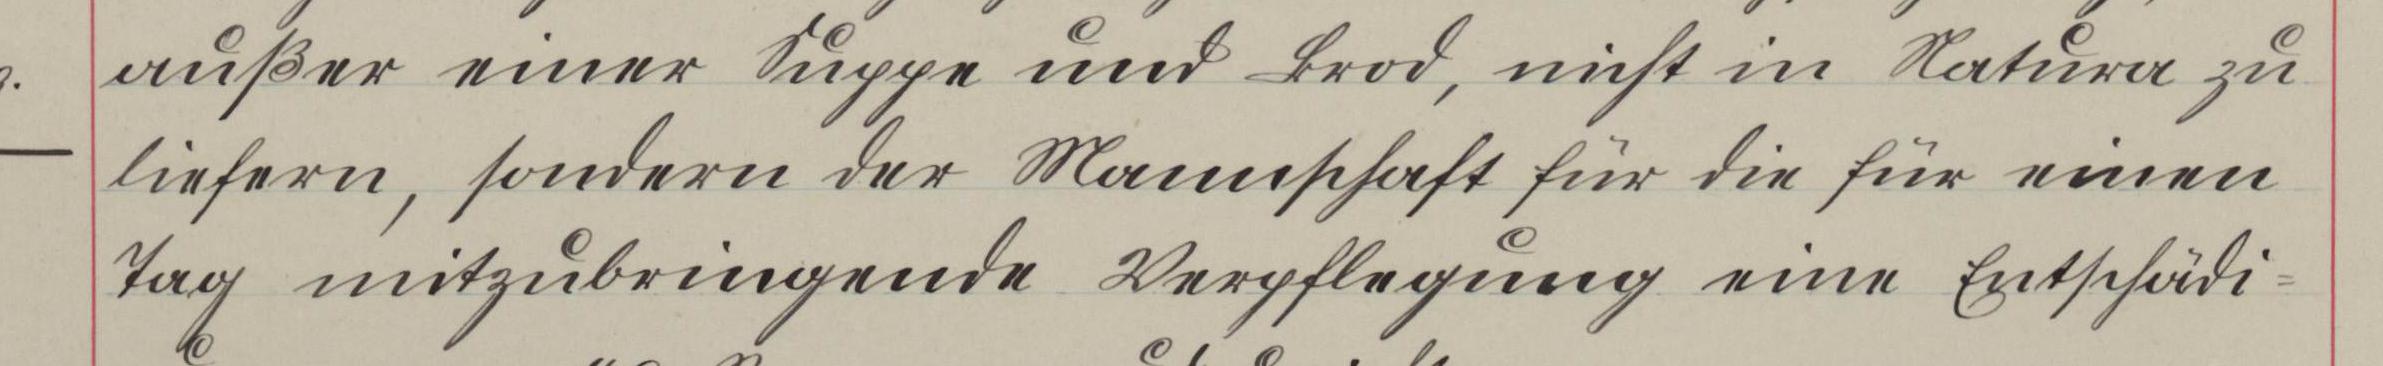 außer einer Suppe und Brod, nicht in Natura zu
liefern, sondern der Mannschaft für die für einen
Tag mitzubringende Verpflegung eine Entschädi=